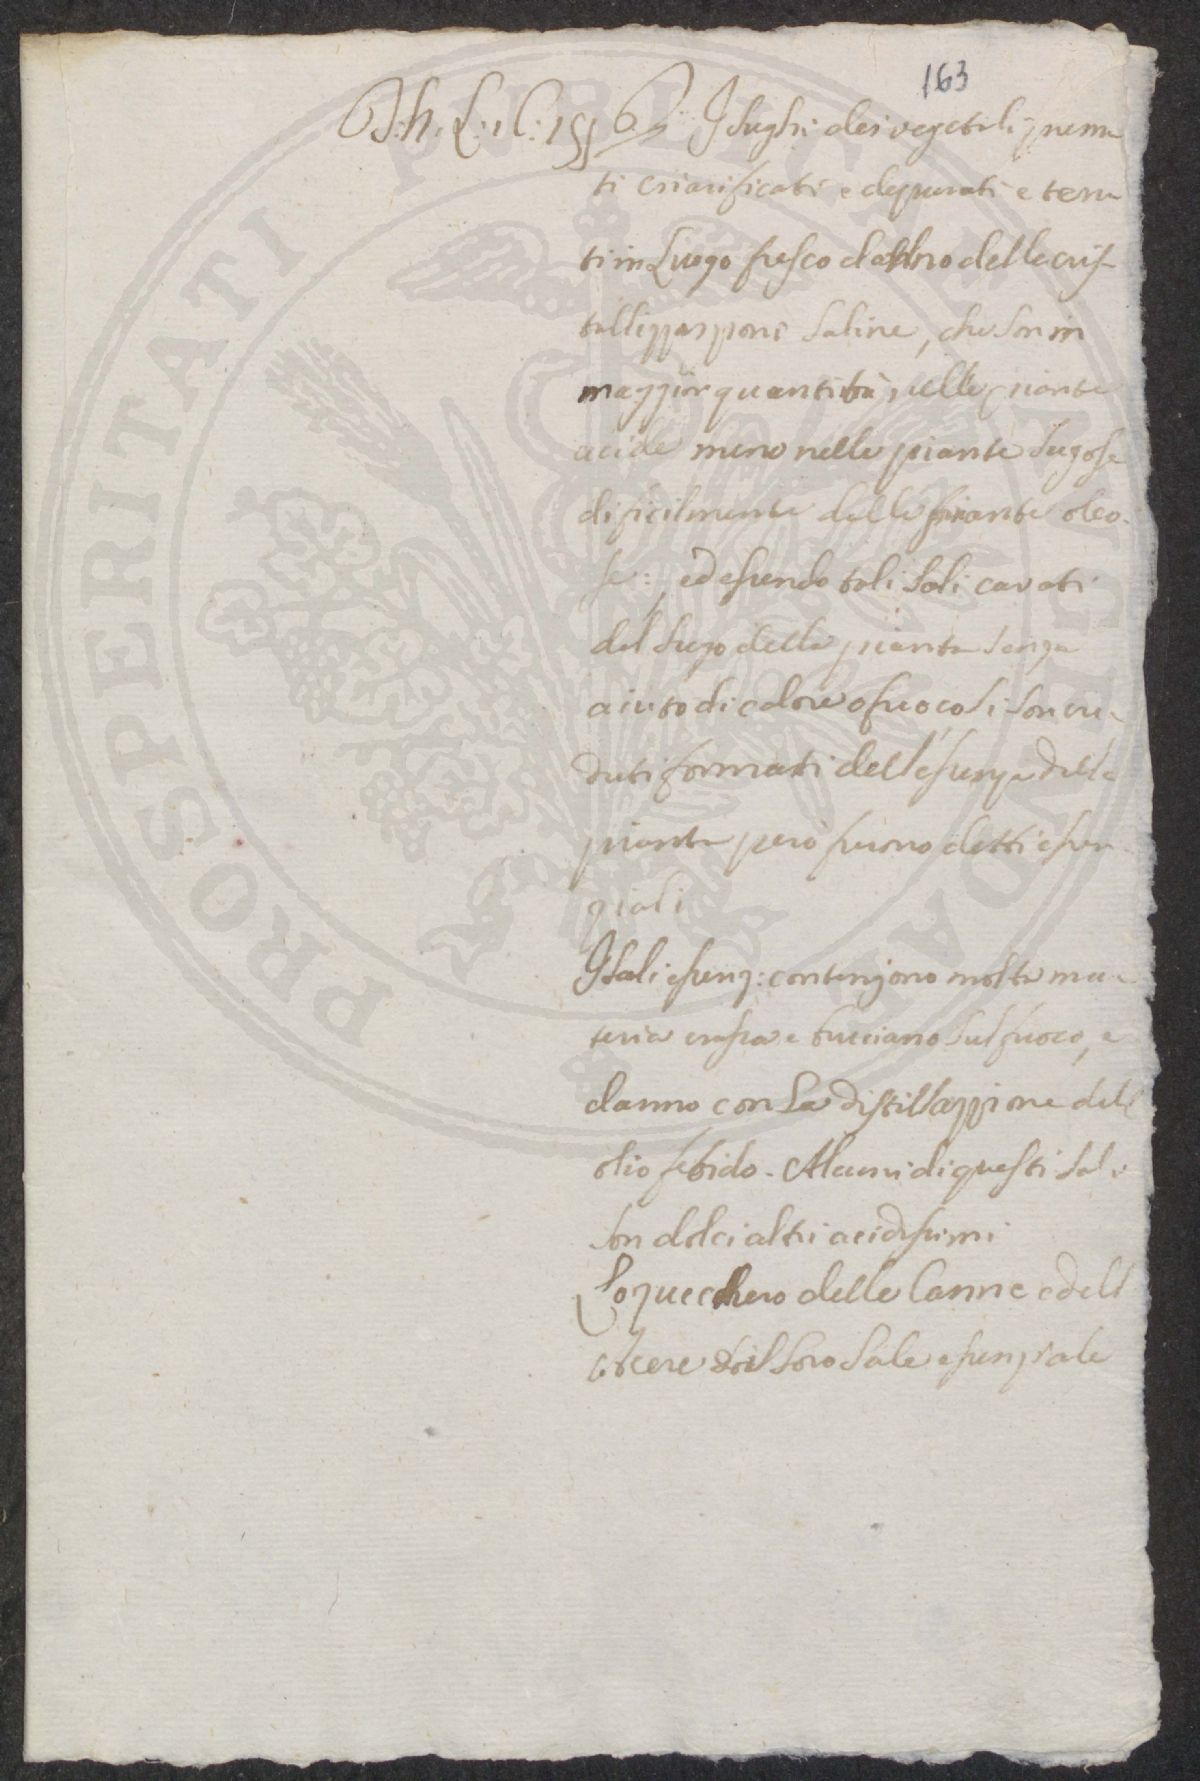 163
I sughi dei vegetabili premu
ti chiarificati e depurati e tenu
ti in Luogo fresco dan loro delle cris
tallizzazzioni saline, che son in
maggior quantità nelle piante
acide meno nelle piante sugose
dificilmente dalle piante oleo-
se: ed essendo tali sali cavati
dal sugo della pianta senza
aiuto di calore o fuoco si son cre
duti formati dell'essenza della
pianta però furono detti essen
ziali
I sali essenz: contengono molta ma
teria crassa e bruciano sul fuoco, e
danno con La distillazzione dell
olio fetido. Alcuni di questi sali
son dolci altri acidissimi
Lo zucchero delle Canne e dell
acere è il loro sale essenziale
PROSPERITATI PUBLICAE AUGENDAE